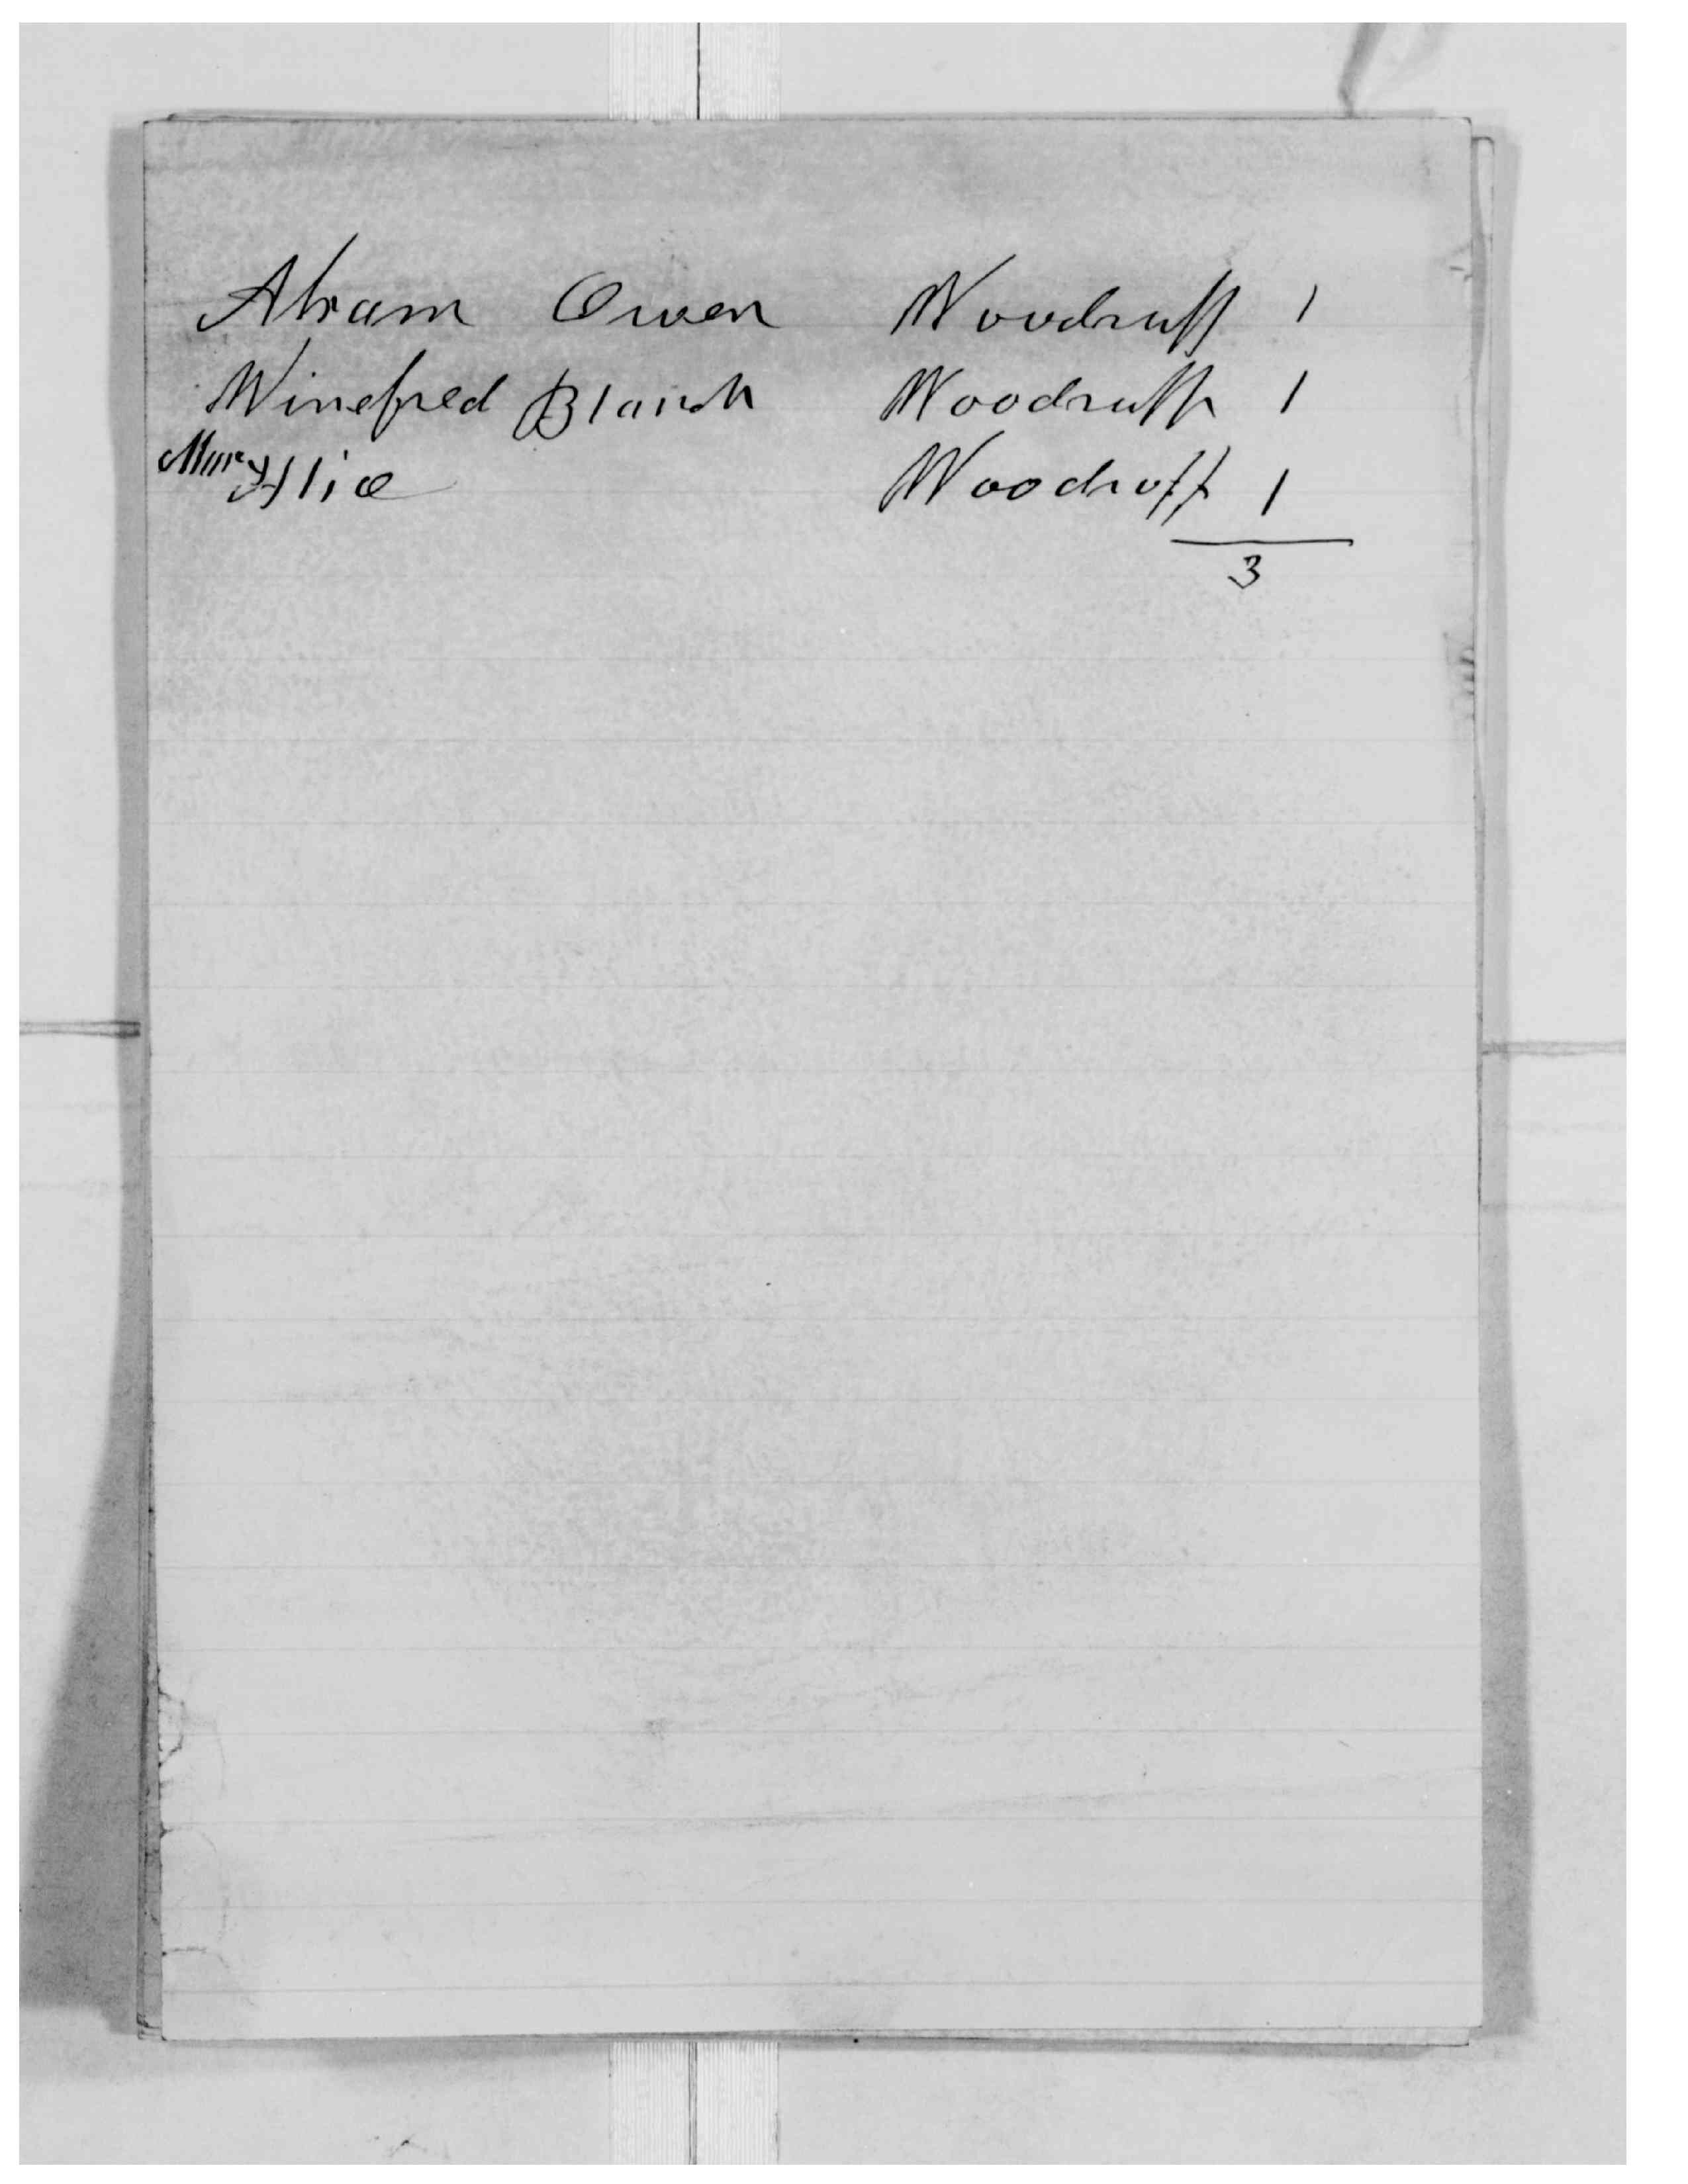 Abram Owen Woodruff 1
Winefred Blanch Woodruff 1
Mary Alice Woodruff 1
3